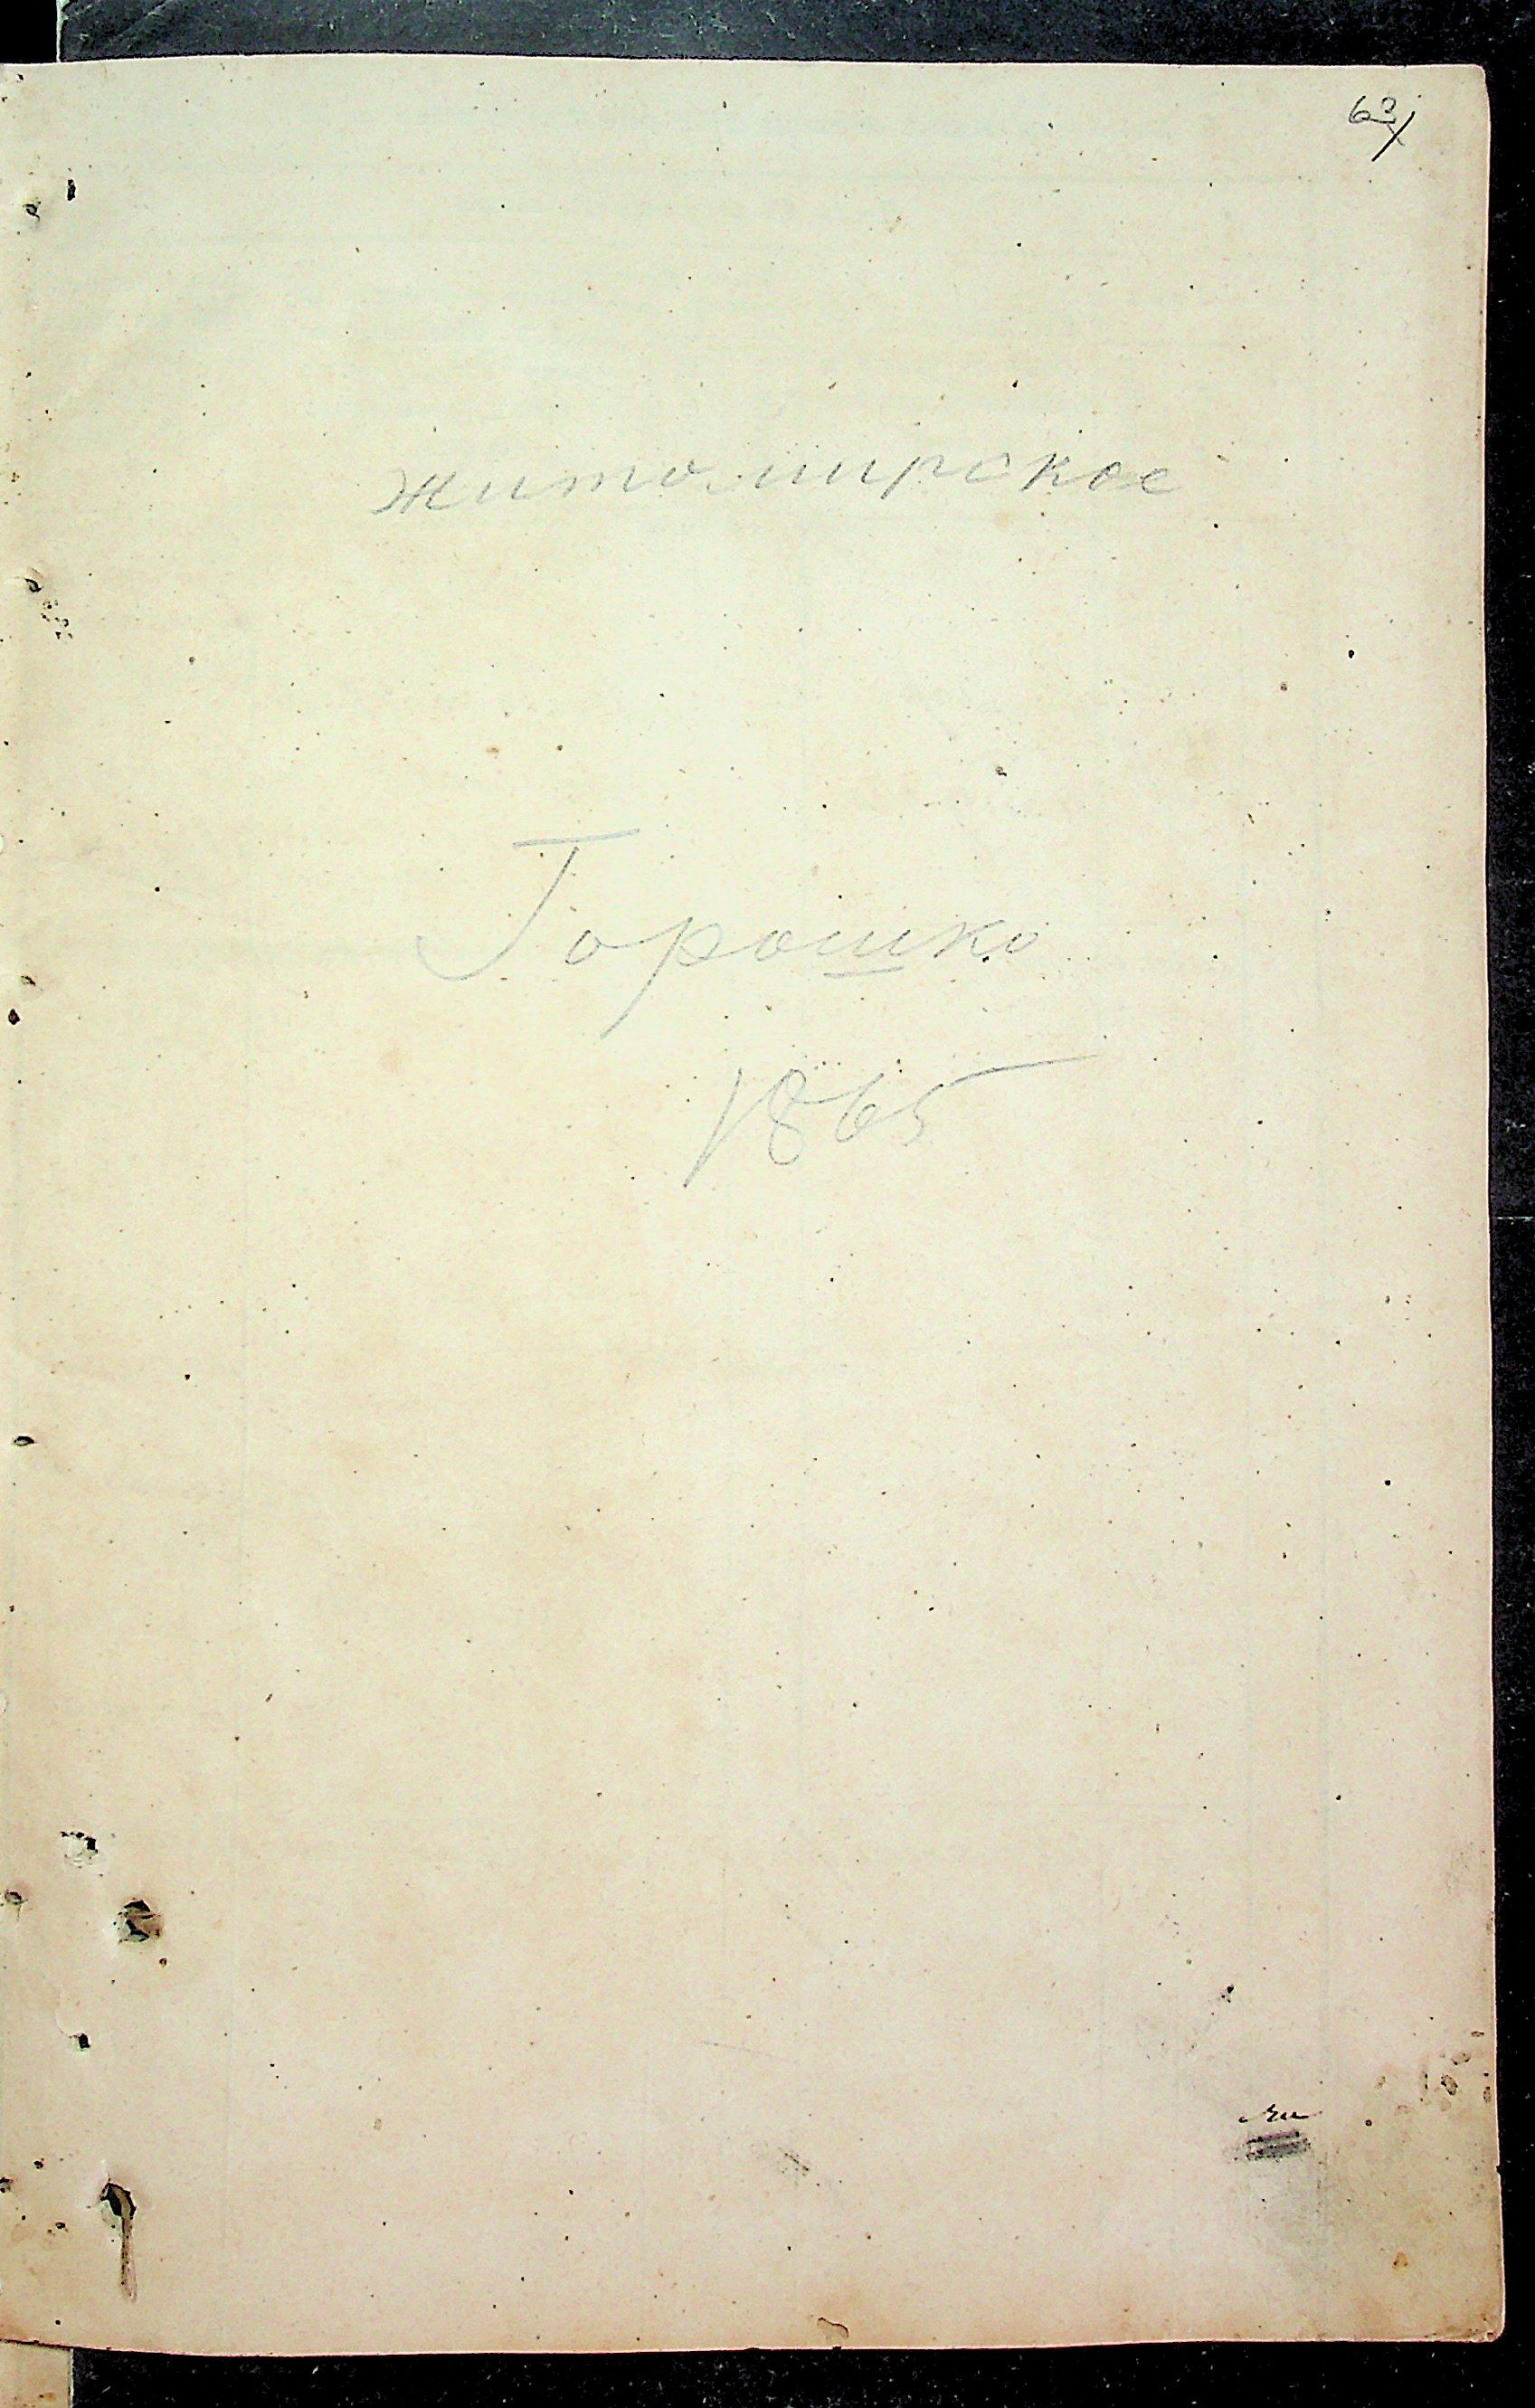 63
Житомирское
Горошко
1865